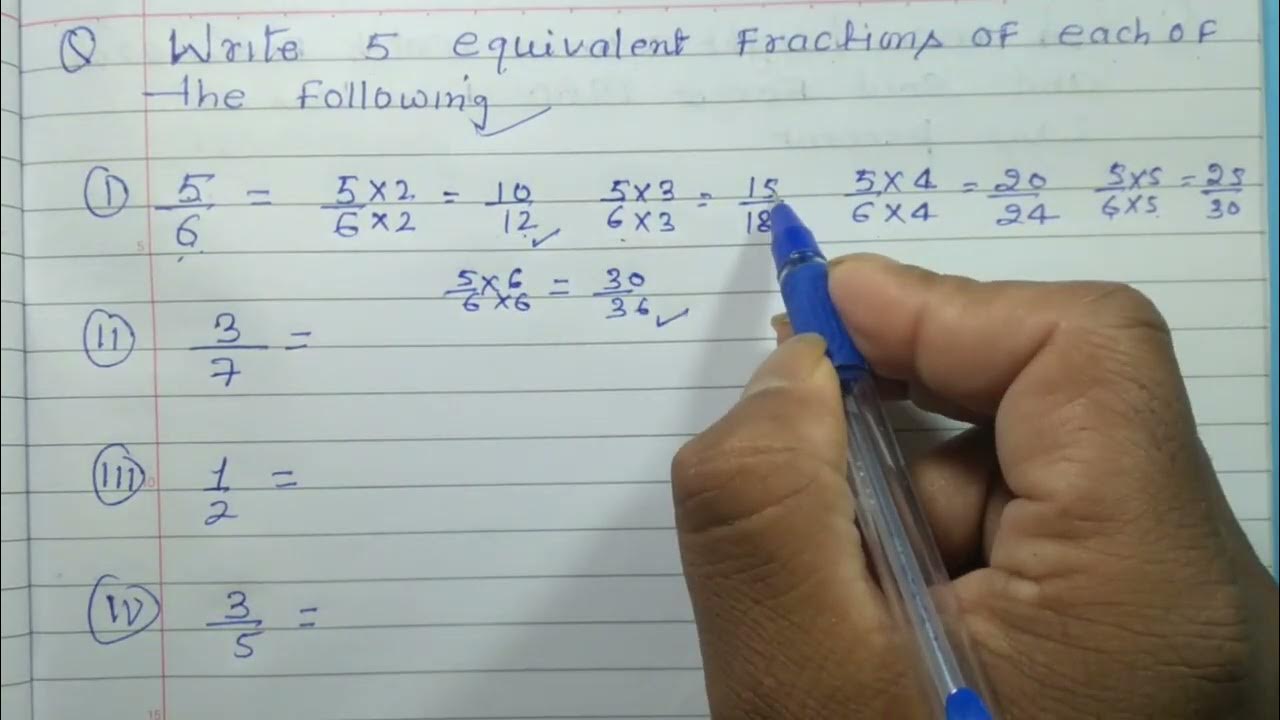 Q Write 5 equivalent Fractions of each of
the following
I 5/6 = 5×2/6×2 = 10/12 5×3/6×3 = 15/18 5×4/6×4 = 20/24 5×5/6×5 = 25/30
5×6/6×6 = 30/36
II 3/7 =
III 1/2 =
IV 3/5 =